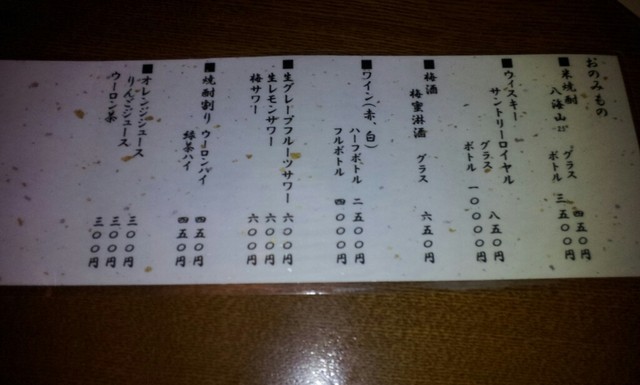 おのみもの
■米焼酎
八海山 グラス 四五〇円
ボトル 三五〇〇円
■ウィスキー
サントリーロイヤル
グラス 八五〇円
ボトル 一〇〇〇〇円
■梅酒
梅蜜淋酒 グラス 六五〇円
■ワイン(赤、白)
ハーフボトル 二五〇〇円
フルボトル 四〇〇〇円
■生グレープフルーツサワー 六〇〇円
生レモンサワー 六〇〇円
梅サワー 六〇〇円
■焼酎割り ウーロンハイ 四五〇円
緑茶ハイ 四五〇円
■オレンジジュース 三〇〇円
りんごジュース 三〇〇円
ウーロン茶 三〇〇円